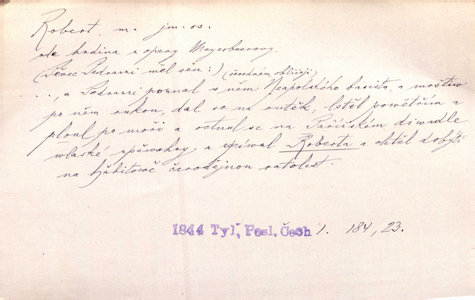 Robert, m. jm. os.
zde hrdina z opery Meyerbeerovy.
(Pěvec Pedrazzi měl sen:) (čenichám blížeji)
..., a Pedrazzi poznal v něm Neapolského basistu, a mrštiv
po něm rukou, dal se na outěk, letěl povětřím a
ploul po moři a octnul se na Pařížském diwadle
vlaské zpěwohry, a zpíwal Roberta a chtěl dobýti
na hřbitově čarodějnou ratolest.
1844 Tyl, Posl. Čech 1. 184, 23.